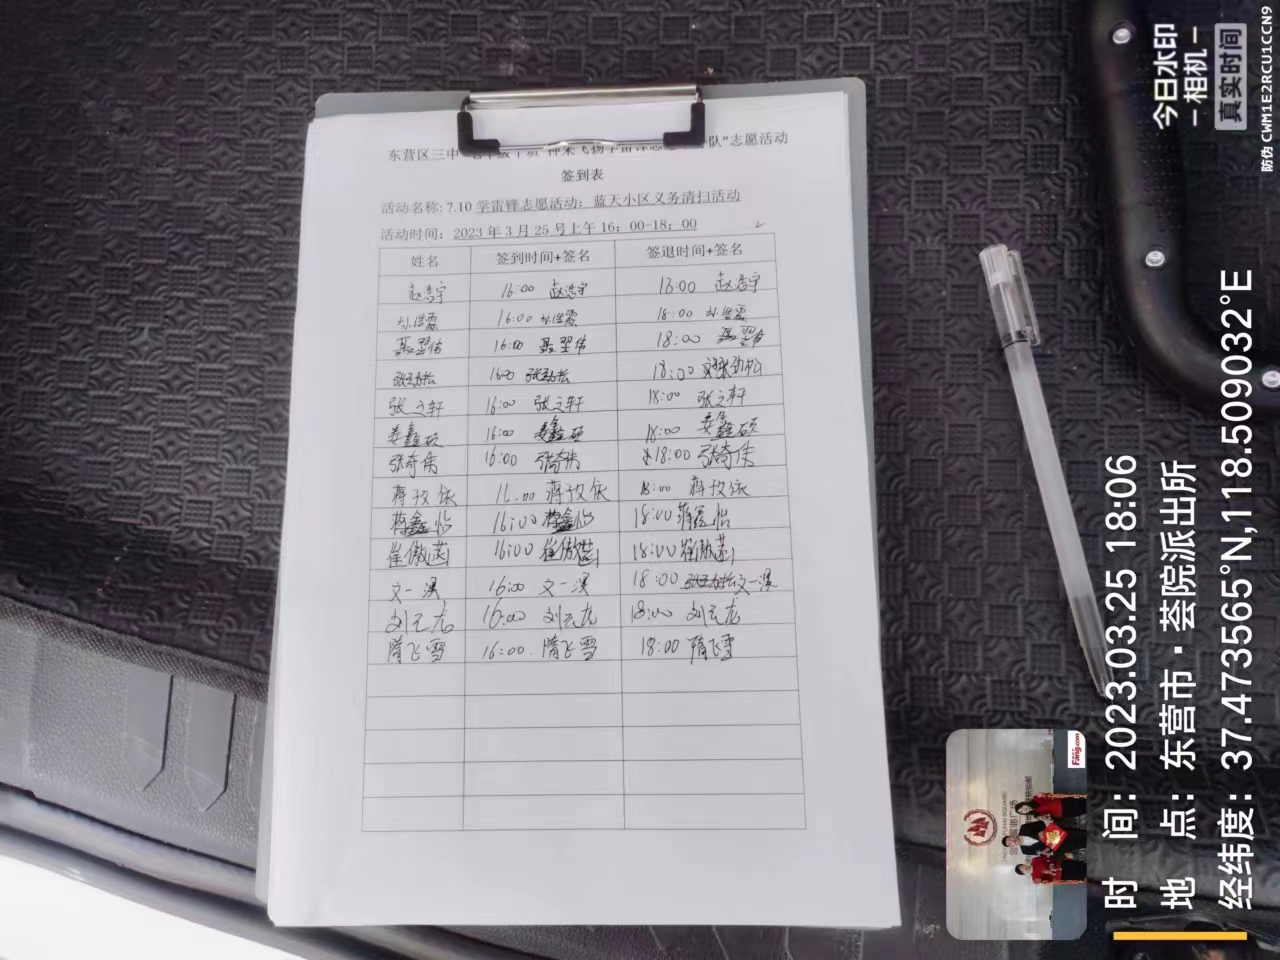 东营区三中
队”志愿活动
签到表
活动名称: 7.10 学雷锋志愿活动：蓝天小区义务清扫活动
活动时间：2023 年 3 月 25 号上午 16：00-18；00
姓名 签到时间+签名 签退时间+签名
赵浩宇 16:00 赵浩宇 18:00 赵浩宇
16:00 18:00
聂翌伟 16:00 聂翌伟 18:00 聂翌伟
张劲松 1600 张劲松 18:00 张劲松
张立轩 16:00 张立轩 18:00 张立轩
娄鑫硕 16:00 娄鑫硕 18:00 娄鑫硕
张奇伟 16:00 张奇伟 18:00 张奇伟
蒋玫依 蒋玫依 18:00 蒋玫依
蒋鑫怡 16:00 蒋鑫怡 18:00 蒋鑫怡
崔傲菡 16:00 崔傲菡 18:00 崔傲菡
文一淏 16:00 文一淏 18:00 文一淏
刘云龙 16:00 刘云龙 18:00 刘云龙
隋飞雪 16:00. 隋飞雪 18:00 隋飞雪
时 间: 2023.03.25 18:06
地 点: 东营市·荟院派出所
经纬度: 37.473565°N,118.509032°E
今日水印
-相机-
真实时间
防伪 CWM1E2RCU1CCN9
Fang.com